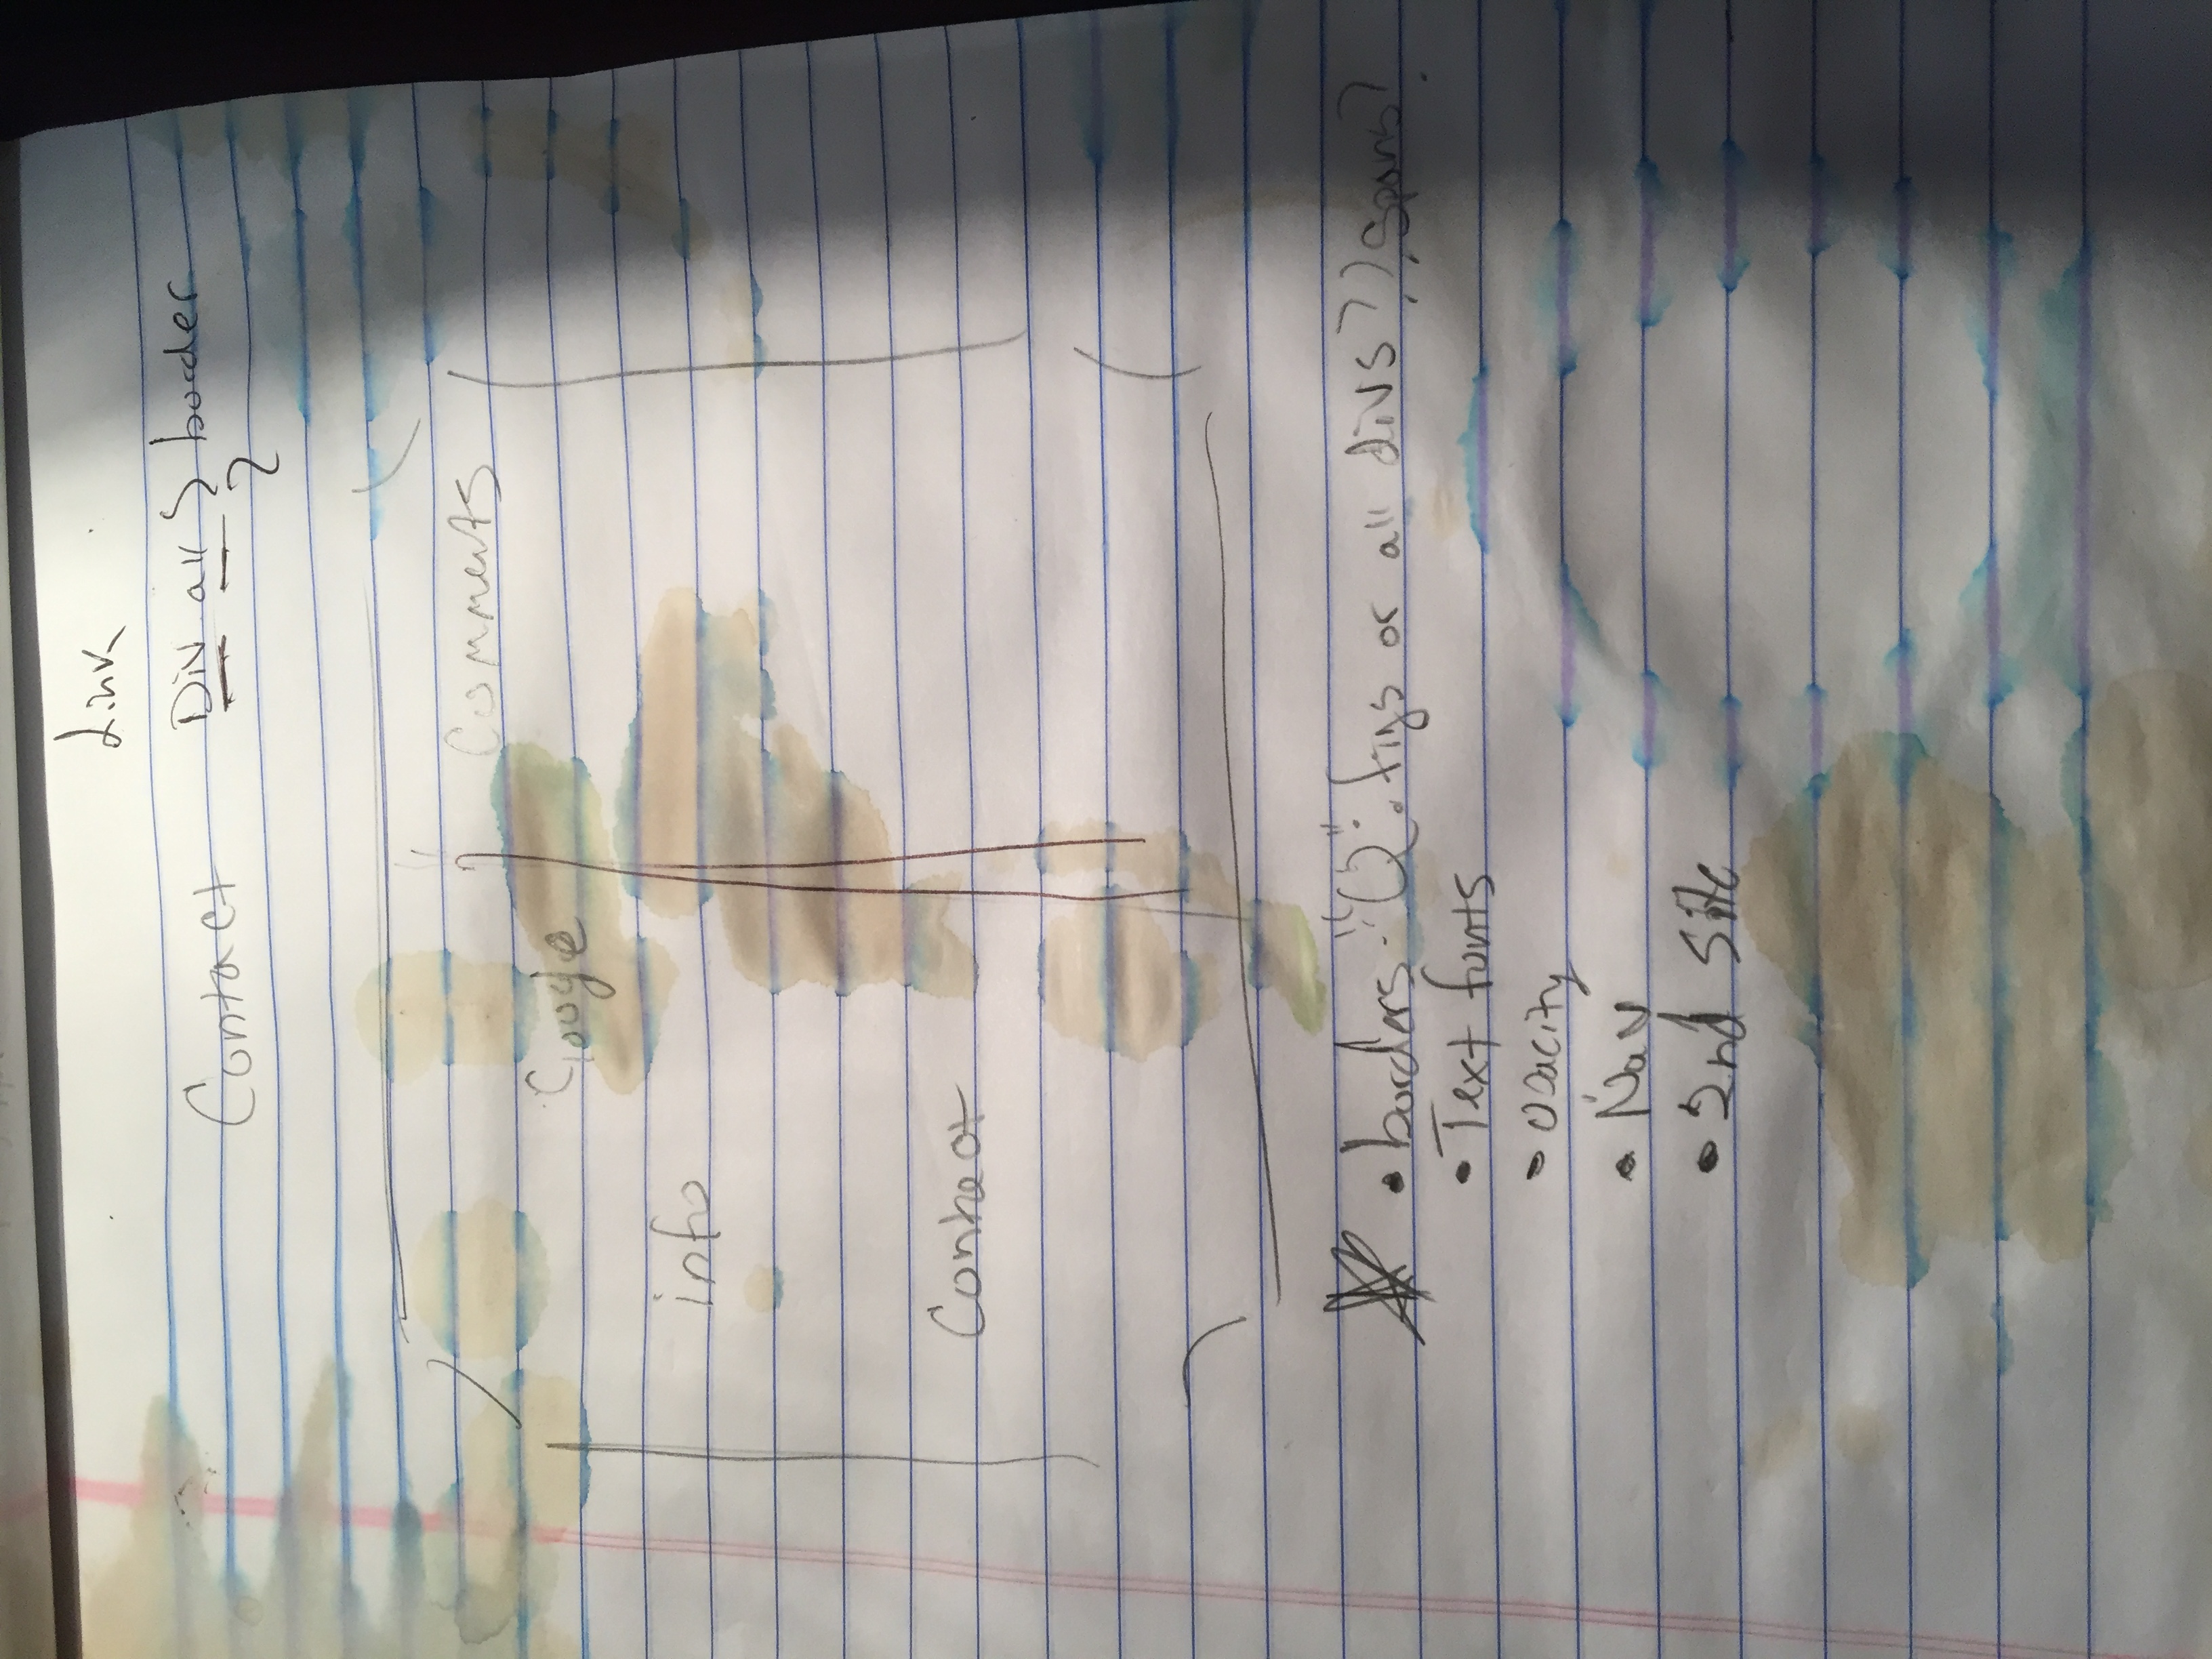 Link
Contact Div all } border
?
Comments
Google
info
Contact
• borders "Q". figs or all divs?? Spans?
• Text fonts
• Opacity
• Nav
• 2nd Site